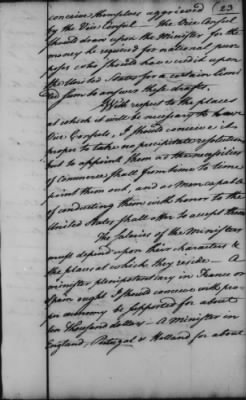 23
conceive themselves aggrieved
by the Vice Consul — The Vice Consul
should draw upon the Minister for the
money he required for national pur
poses who should have credit upon
the United States for a certain limit
ed sum to answer these drafts.
With respect to the places
at which it will be necessary to have
Vice Consuls, I should conceive it
proper to take no precipitate resolution
but to appoint them as the necessities
of Commerce shall from time to time
point them out, and as Men capable
of conducting them with honor to the
United States shall offer to accept them
The Salaries of the Ministers
must depend upon their characters &
the places at which they reside — A
minister plenipotentiary in France or
Spain ought I should conceive with pro-
per œconomy be supported for about
ten thousand dollars — A Minister in
England, Portugal & Holland for about